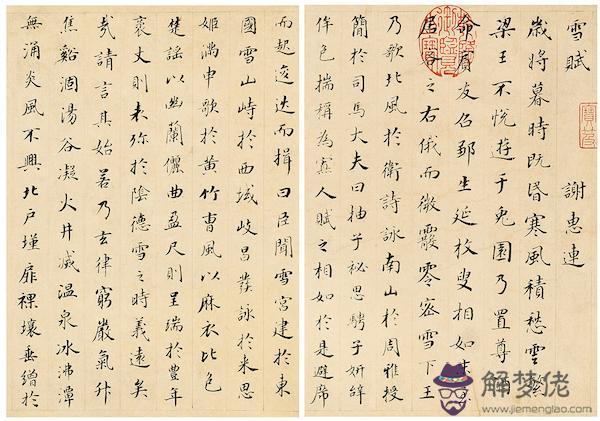 雪賦 謝惠連
歲將暮時既昏寒風積愁雲繁
梁王不悅遊于兔園乃置尊酒
命賓友召鄒生延枚叟相如末至
居客之右俄而微霰零密雪下王
乃歌北風於衛詩詠南山於周雅授
簡於司馬大夫曰抽子祕思騁子妍辭
侔色揣稱為寡人賦之相如於是避席
而起逡巡而揖曰臣聞雪宮建於東
國雪山峙於西域岐昌發詠於來思
姬滿申歌於黃竹曹風以麻衣比色
楚謠以幽蘭儷曲盈尺則呈瑞於豐年
袤丈則表沴於陰德雪之時義遠矣
哉請言其始若乃玄律窮嚴氣升
焦谿涸湯谷凝火井滅溫泉冰沸潭
無涌炎風不興北戶墐扉裸壤垂繒於
解梦佬
www.jiemenglao.com